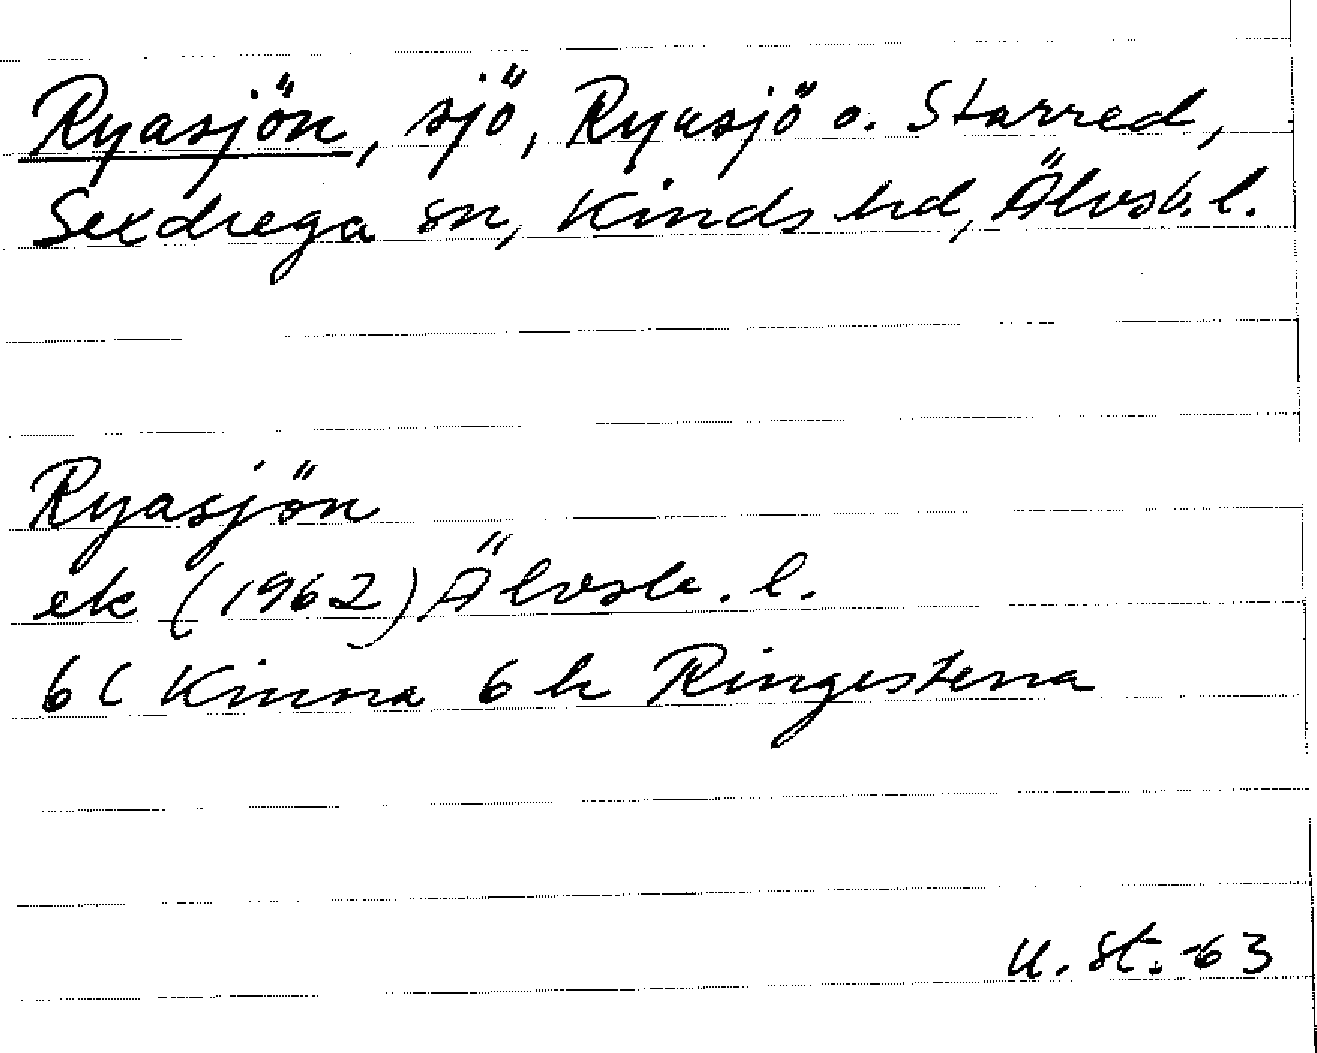 Ryasjön, sjö, Ryasjö o. Starred,
Sexdrega sn, Kinds hd, Älvsb. l.
Ryasjön
ek (1962) Älvsb. l.
6C Kinna 6 h Ringestena
U. St. -63